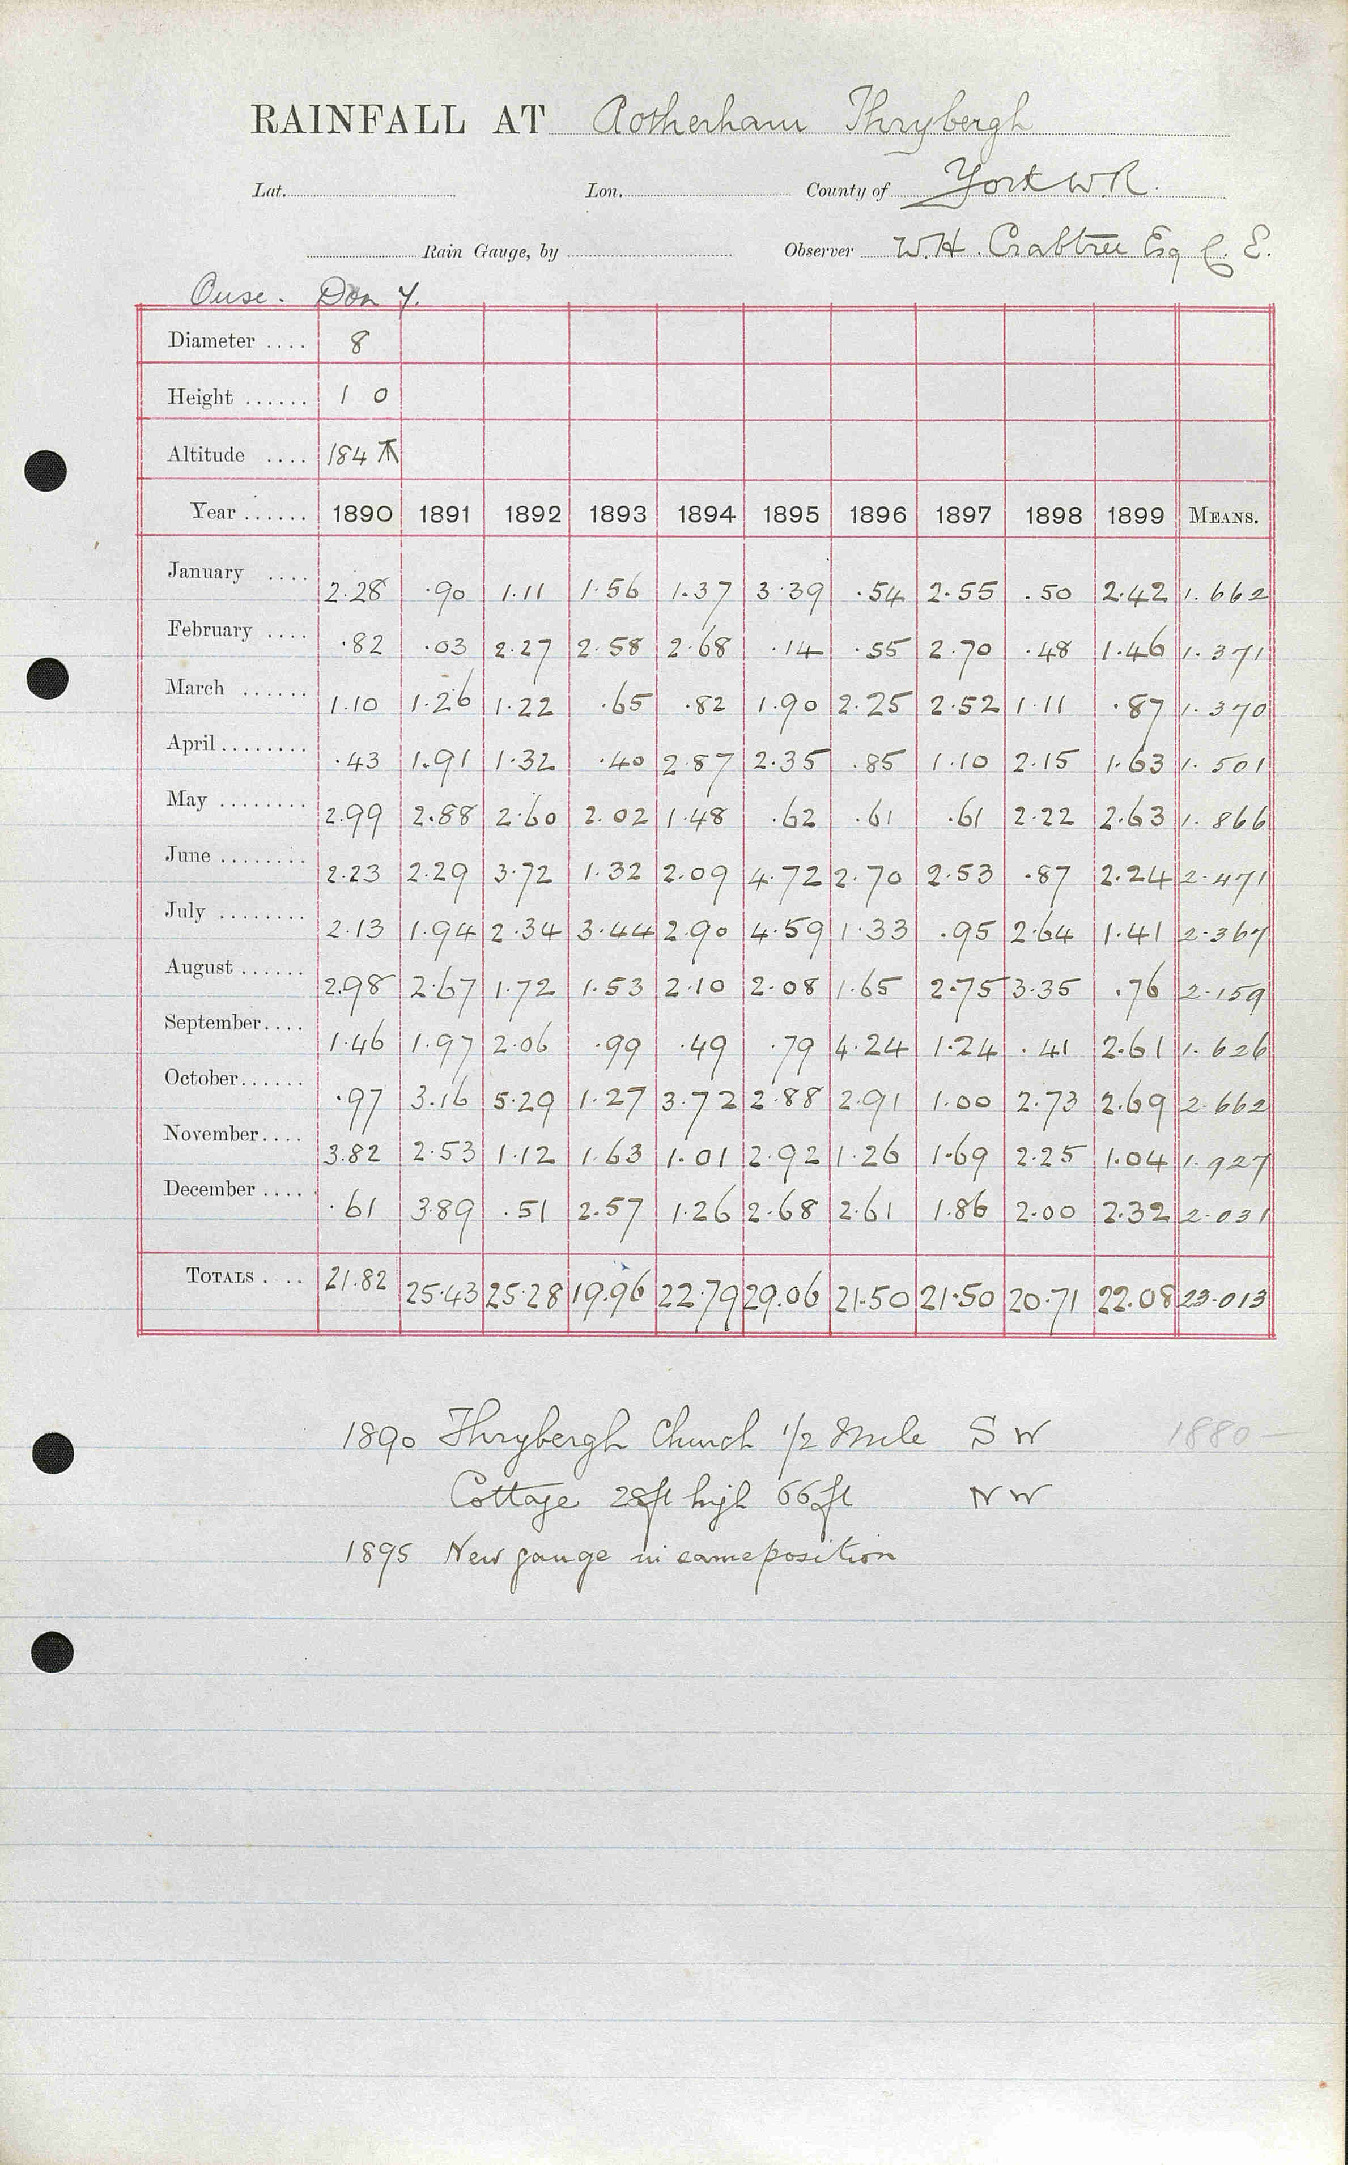 RAINFALL AT Rotherham Thrybergh
Lat. Lon. County of York W.R.
Rain Gauge, by Observer W.H. Crabtree Esq C.E.
Ouse. Don 7.
Diameter .... 8
Height ...... 1 0
Altitude .... 184
Year ...... 1890 1891 1892 1893 1894 1895 1896 1897 1898 1899 MEANS.
January .... 2.28 .90 1.11 1.56 1.37 3.39 .54 2.55 .50 2.42 1.662
February .... .82 .03 2.27 2.58 2.68 .14 .55 2.70 .48 1.46 1.371
March ...... 1.10 1.26 1.22 .65 .82 1.90 2.25 2.52 1.11 .87 1.370
April ........ .43 1.91 1.32 .40 2.87 2.35 .85 1.10 2.15 1.63 1.501
May ........ 2.99 2.88 2.60 2.02 1.48 .62 .61 .61 2.22 2.63 1.866
June ........ 2.23 2.29 3.72 1.32 2.09 4.72 2.70 2.53 .87 2.24 2.471
July ........ 2.13 1.94 2.34 3.44 2.90 4.59 1.33 .95 2.64 1.41 2.367
August ...... 2.98 2.67 1.72 1.53 2.10 2.08 1.65 2.75 3.35 .76 2.159
September.... 1.46 1.97 2.06 .99 .49 .79 4.24 1.24 .41 2.61 1.626
October...... .97 3.16 5.29 1.27 3.72 2.88 2.91 1.00 2.73 2.69 2.662
November.... 3.82 2.53 1.12 1.63 1.01 2.92 1.26 1.69 2.25 1.04 1.927
December ..... .61 3.89 .51 2.57 1.26 2.68 2.61 1.86 2.00 2.32 2.031
TOTALS .... 21.82 25.43 25.28 19.96 22.79 29.06 21.50 21.50 20.71 22.08 23.013
1890 Thrybergh Church 1/2 Mile S W 1880
Cottage 28ft high 66ft N W
1895 New gauge in same position